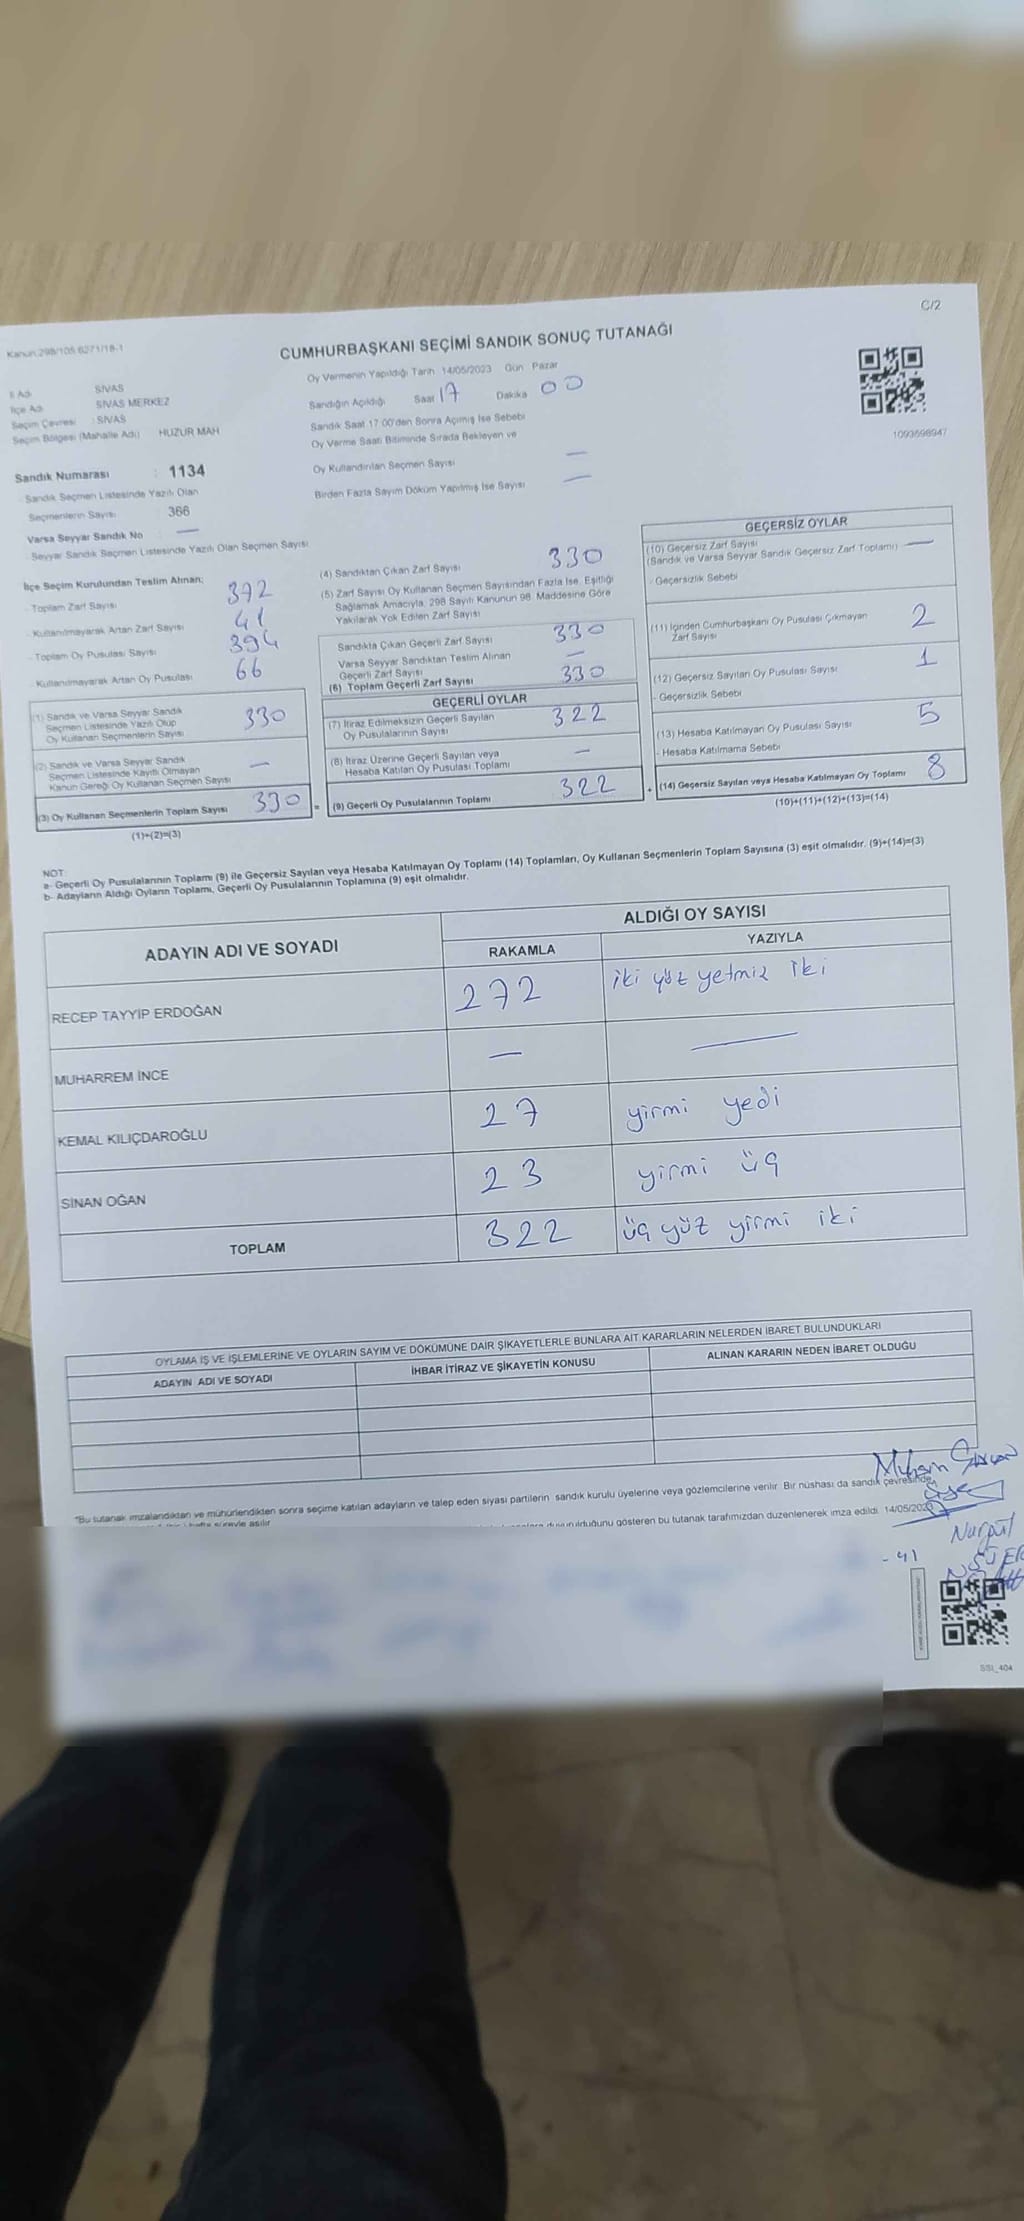 C/2
Kanun:298/105 6271/18-1
CUMHURBAŞKANI SEÇİMİ SANDIK SONUÇ TUTANAĞI
İl Adı SİVAS
İlçe Adı SİVAS MERKEZ
Seçim Çevresi : SİVAS
Seçim Bölgesi (Mahalle Adı) HUZUR MAH
Oy Vermenin Yapıldığı Tarih 14/05/2023 Gün Pazar
Sandığın Açıldığı Saat 17 Dakika 00
Sandık Saat 17:00'den Sonra Açılmış İse Sebebi
Oy Verme Saati Bitiminde Sırada Bekleyen ve
Oy Kullandırılan Seçmen Sayısı —
Birden Fazla Sayım Döküm Yapılmış İse Sayısı —
1093698947
Sandık Numarası : 1134
- Sandık Seçmen Listesinde Yazılı Olan
Seçmenlerin Sayısı 366
Varsa Seyyar Sandık No —
- Seyyar Sandık Seçmen Listesinde Yazılı Olan Seçmen Sayısı
İlçe Seçim Kurulundan Teslim Alınan;
- Toplam Zarf Sayısı 372
- Kullanılmayarak Artan Zarf Sayısı 41
- Toplam Oy Pusulası Sayısı 394
Kullanılmayarak Artan Oy Pusulası 66
(1) Sandık ve Varsa Seyyar Sandık
Seçmen Listesinde Yazılı Olup
Oy Kullanan Seçmenlerin Sayısı 330
(2) Sandık ve Varsa Seyyar Sandık
Seçmen Listesinde Kayıtlı Olmayan
Kanun Gereği Oy Kullanan Seçmen Sayısı —
(3) Oy Kullanan Seçmenlerin Toplam Sayısı 330 =
(1)+(2)=(3)
(4) Sandıktan Çıkan Zarf Sayısı 330
(5) Zarf Sayısı Oy Kullanan Seçmen Sayısından Fazla İse, Eşitliği
Sağlamak Amacıyla, 298 Sayılı Kanunun 98. Maddesine Göre
Yakılarak Yok Edilen Zarf Sayısı
Sandıkta Çıkan Geçerli Zarf Sayısı 330
Varsa Seyyar Sandıktan Teslim Alınan
Geçerli Zarf Sayısı —
(6) Toplam Geçerli Zarf Sayısı 330
GEÇERLİ OYLAR
(7) İtiraz Edilmeksizin Geçerli Sayılan
Oy Pusulalarının Sayısı 322
(8) İtiraz Üzerine Geçerli Sayılan veya
Hesaba Katılan Oy Pusulası Toplamı —
(9) Geçerli Oy Pusulalarının Toplamı 322 +
GEÇERSİZ OYLAR
(10) Geçersiz Zarf Sayısı
(Sandık ve Varsa Seyyar Sandık Geçersiz Zarf Toplamı) —
- Geçersizlik Sebebi
(11) İçinden Cumhurbaşkanı Oy Pusulası Çıkmayan
Zarf Sayısı 2
(12) Geçersiz Sayılan Oy Pusulası Sayısı 1
- Geçersizlik Sebebi
(13) Hesaba Katılmayan Oy Pusulası Sayısı 5
- Hesaba Katılmama Sebebi
(14) Geçersiz Sayılan veya Hesaba Katılmayan Oy Toplamı 8
(10)+(11)+(12)+(13)=(14)
NOT:
a- Geçerli Oy Pusulalarının Toplamı (9) ile Geçersiz Sayılan veya Hesaba Katılmayan Oy Toplamı (14) Toplamları, Oy Kullanan Seçmenlerin Toplam Sayısına (3) eşit olmalıdır. (9)+(14)=(3)
b- Adayların Aldığı Oyların Toplamı, Geçerli Oy Pusulalarının Toplamına (9) eşit olmalıdır.
ADAYIN ADI VE SOYADI
ALDIĞI OY SAYISI
RAKAMLA YAZIYLA
RECEP TAYYİP ERDOĞAN 272 iki yüz yetmiz iki
MUHARREM İNCE — —
KEMAL KILIÇDAROĞLU 27 yirmi yedi
SİNAN OĞAN 23 yirmi üç
TOPLAM 322 üç yüz yirmi iki
OYLAMA İŞ VE İŞLEMLERİNE VE OYLARIN SAYIM VE DÖKÜMÜNE DAİR ŞİKAYETLERLE BUNLARA AİT KARARLARIN NELERDEN İBARET BULUNDUKLARI
ADAYIN ADI VE SOYADI İHBAR İTİRAZ VE ŞİKAYETİN KONUSU ALINAN KARARIN NEDEN İBARET OLDUĞU
"Bu tutanak imzalandıktan ve mühürlendikten sonra seçime katılan adayların ve talep eden siyasi partilerin sandık kurulu üyelerine veya gözlemcilerine verilir. Bir nüshası da sandık çevresinde
duyurulduğunu gösteren bu tutanak tarafımızdan düzenlenerek imza edildi. 14/05/2023
- 41
SSI_404